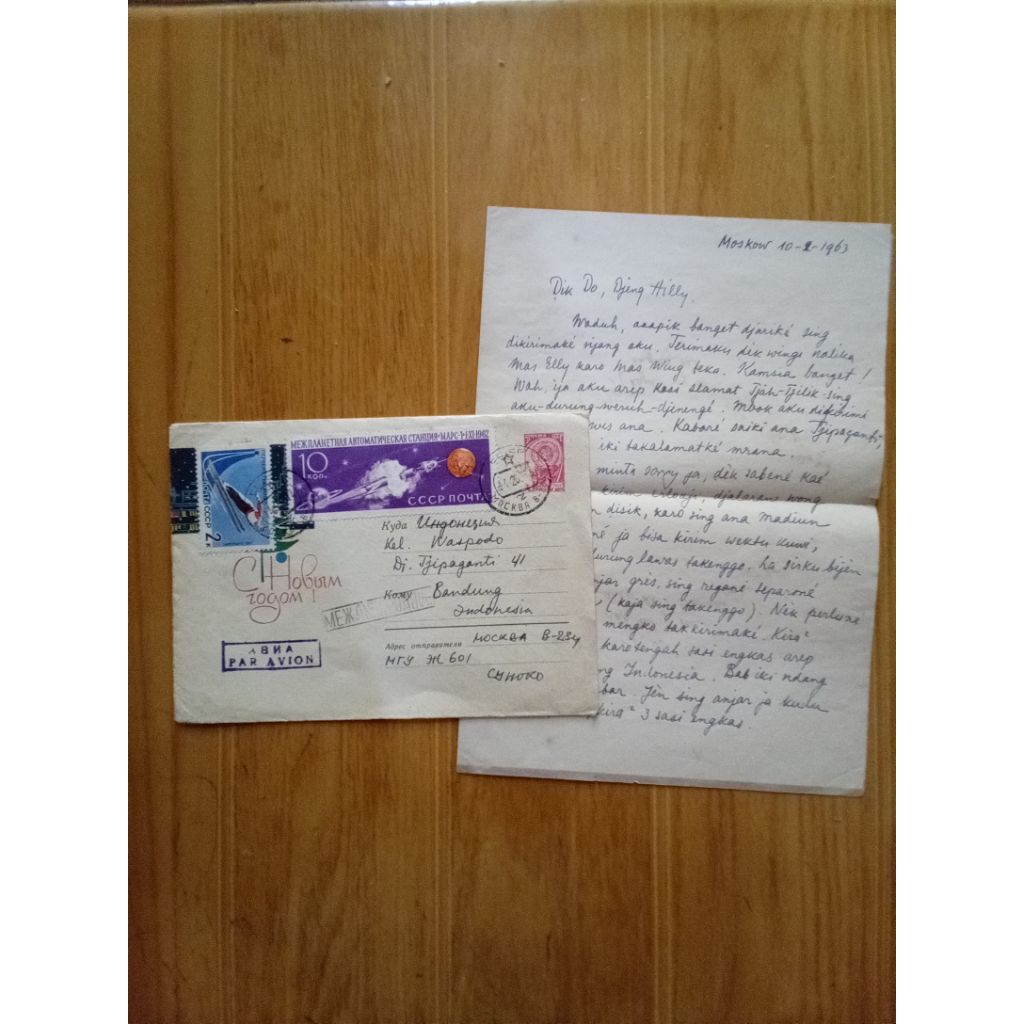 Moskow 10-2-1963
Dik Do, Djeng Hilly,
Waduh, aaapik banget djariké sing
dikirimaké njang aku. Terimaku dèk wingi nalika
Mas Elly karo Mas Wing teka. Kamsia banget!
Wah, ija aku arep kasi slamat Tjah-Tjilik-sing
aku-durung-weruh-djenengé. Mbok aku dikirimi
wis ana. Kabaré saiki ana Tjipaganti,
iki takalamatké mrana.
minta sorry ja, dèk sabené kaé
kirim djalaran wong
disik, karo sing ana Madiun
né ja bisa kirim wektu kuwi,
durung lawas takenggo. La sirku bijèn
anjar grès, sing regané separoné
(kaja sing takenggo). Nèk perlune
mengko takkirimaké. Kira²
karetengah sasi engkas arep
ng Indonesia. Bab iki ndang
bar. Jèn sing anjar ja kudu
kira² 3 sasi engkas.
МЕЖПЛАНЕТНАЯ АВТОМАТИЧЕСКАЯ СТАНЦИЯ "МАРС-1" 1.XI.1962
10 КОП.
СССР ПОЧТА
ПОЧТА СССР 2 К
МОСКВА
С Новым
годом!
Куда Индонеция
Kel. Waspodo
Dj. Tjipaganti 41
Кому Bandung
Indonesia
АВИА
PAR AVION
Адрес отправителя МОСКВА В-234
МГУ Ж 601